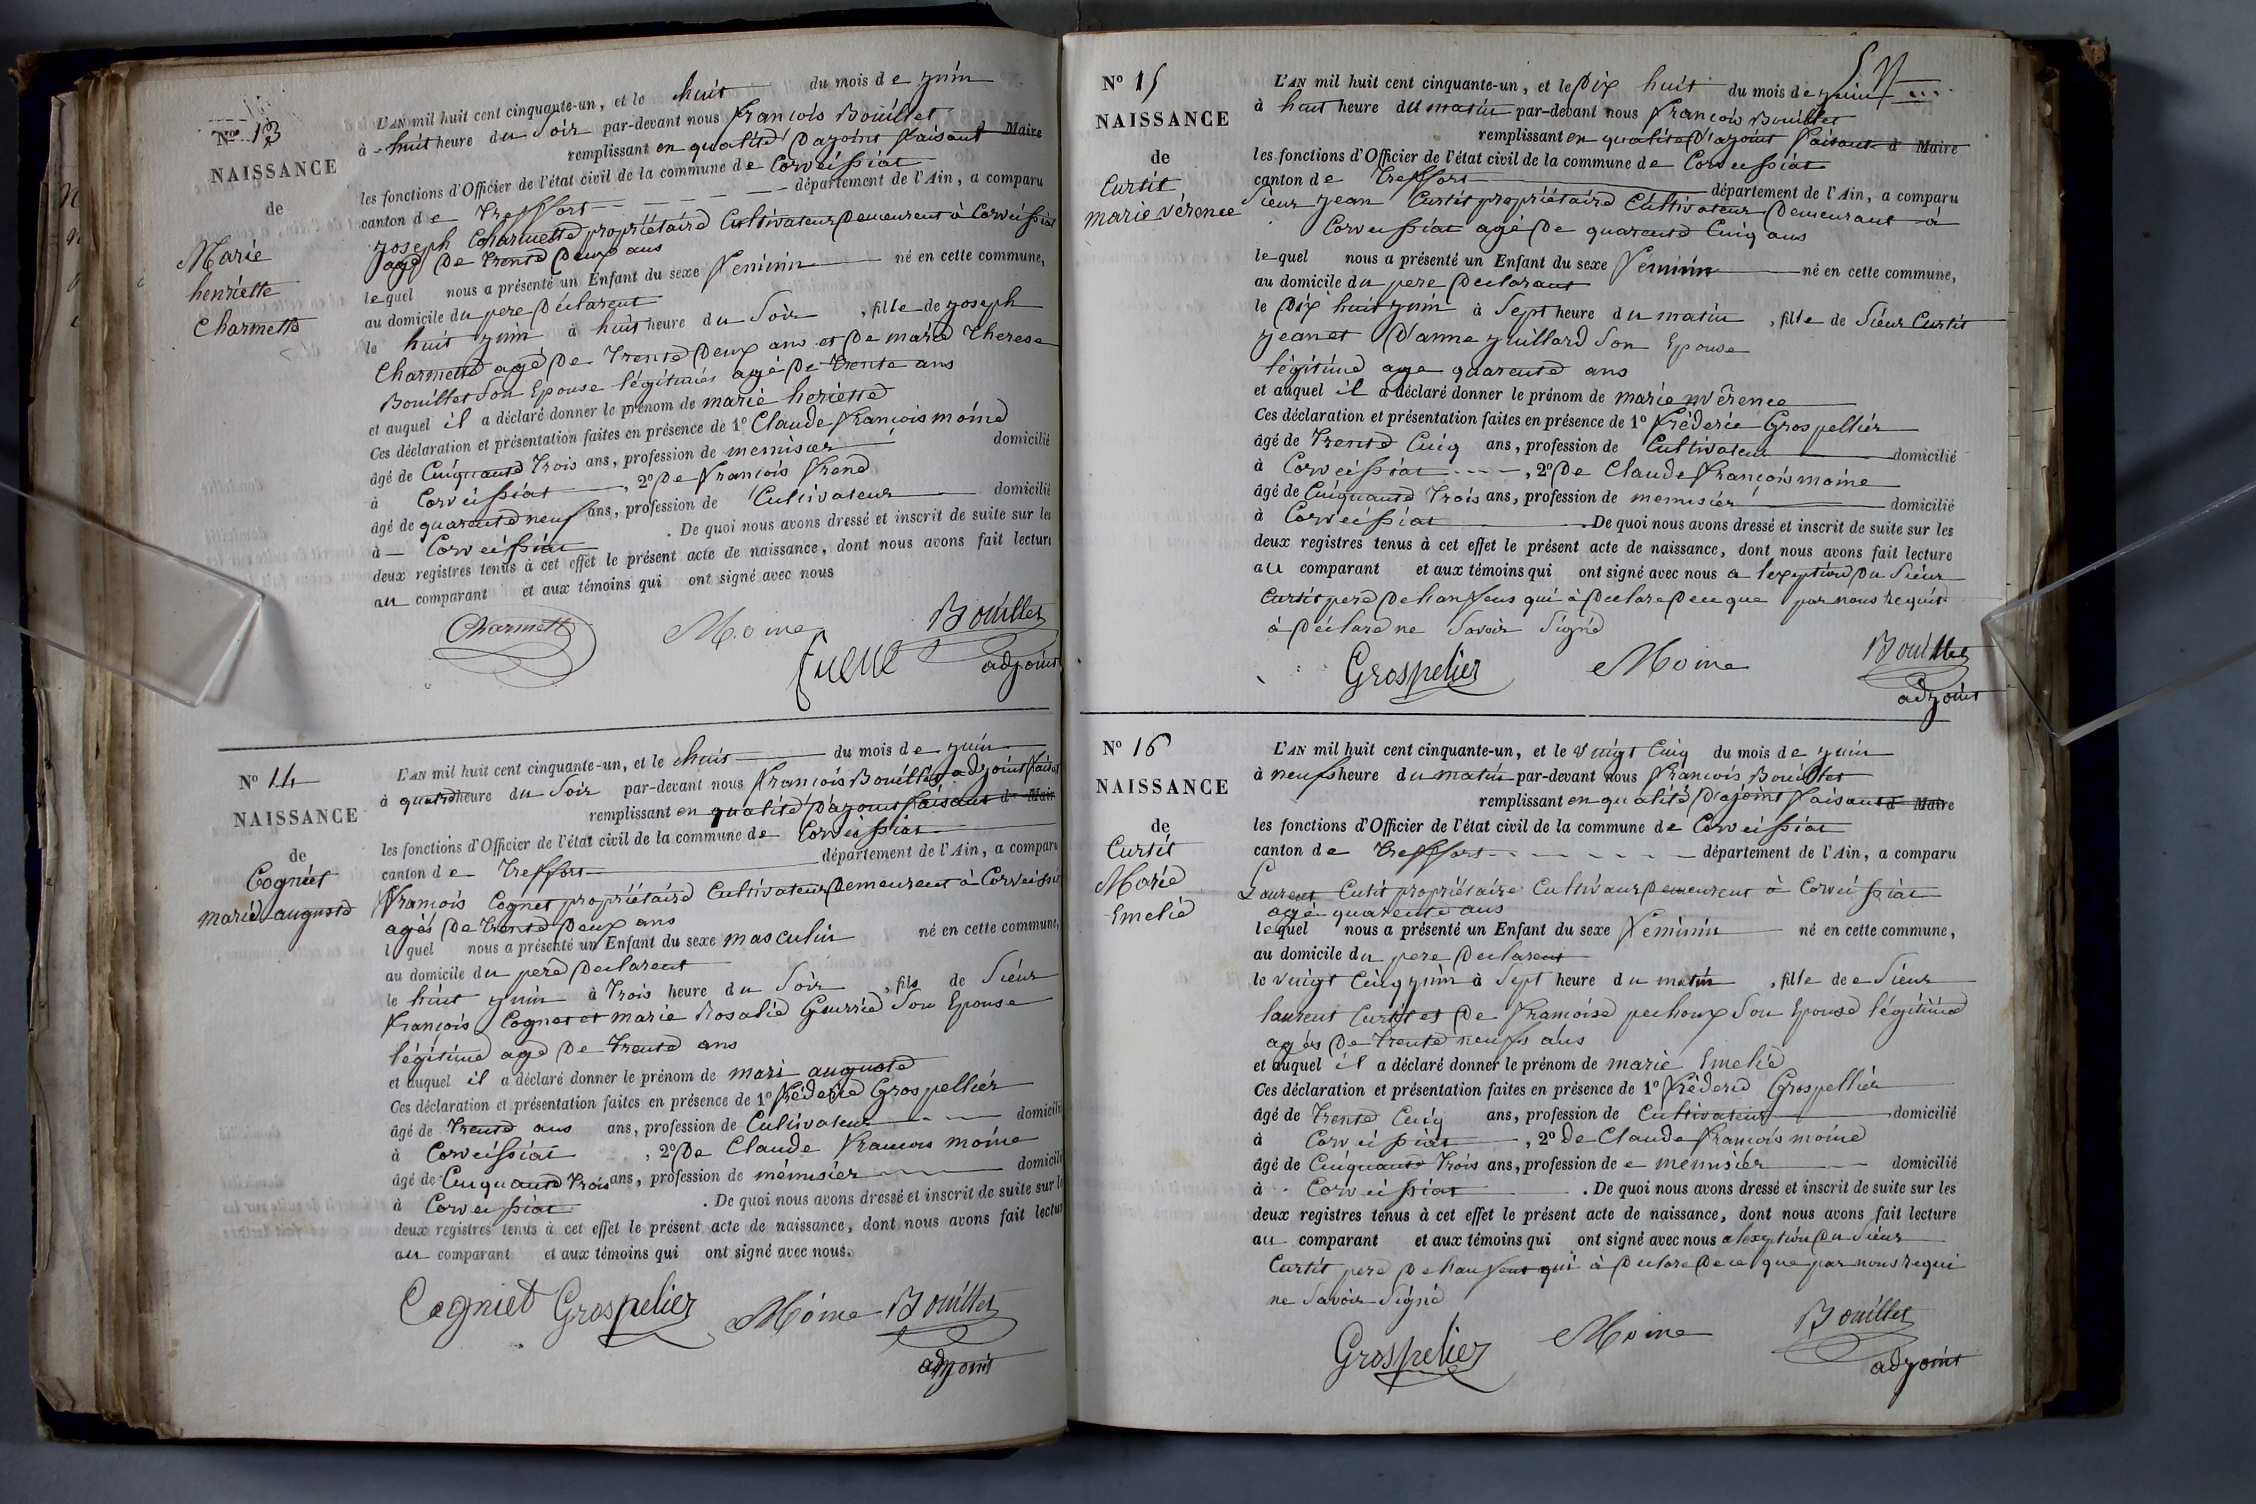 Nº 13
NAISSANCE
de
Marie
henriette
Charmette
L'AN mil huit cent cinquante-un, et le huit du mois de juin
à huit heure du Soir par-devant nous francois Bouillet
remplissant en qualité D'ajoint faisant d Maire
les fonctions d'Officier de l'état civil de la commune de Corveissiat
canton de Treffort département de l'Ain, a comparu
joseph Charmette propriétaire Cultivateur Demeurent à Corveissiat
agé De trente Deux ans
lequel nous a présenté un Enfant du sexe feminin né en cette commune,
au domicile du pere Déclarent
le huit juin à huit heure du Soir, fille de joseph
Charmette agé De Trente Deux ans et De marie Therese
Bouillet Son Epouse légitimés agé De trente ans
et auquel il a déclaré donner le prénom de marie heriette
Ces déclaration et présentation faites en présence de 1º Claude francois moine
âgé de Cuiquante Trois ans, profession de menisier domicilié
à Corveissiat, 2º De francois frene
âgé de quarente neuf ans, profession de Cultivateur domicilié
à Corveissiat. De quoi nous avons dressé et inscrit de suite sur les
deux registres tenus à cet effet le présent acte de naissance, dont nous avons fait lecture
au comparant et aux témoins qui ont signé avec nous
Charmette Moine Bouillet
adjoint
Nº 14
NAISSANCE
de
Cogniet
marie auguste
L'AN mil huit cent cinquante-un, et le huit du mois de juin
à quatre heure du Soir par-devant nous francois Bouillet adjoint faisant
remplissant en qualité D'ajoint faisant d Maire
les fonctions d'Officier de l'état civil de la commune de Corveissiat
canton de Treffort département de l'Ain, a comparu
francois Cognet propriétaire Cultivateur Demeurent à Corveissiat
agés De trente Deux ans
l quel nous a présenté un Enfant du sexe masculin né en cette commune,
au domicile du pere Declarent
le huit juin à Trois heure du Soir, fils de Sieur
françois Cognet et marie Rosalie Gourrie Son Epouse
légitime age De trente ans
et auquel il a déclaré donner le prénom de mari auguste
Ces déclaration et présentation faites en présence de 1º fréderic Grospellier
âgé de trente ans ans, profession de Cultivateur domicilié
à Corveissiat, 2º De Claude francois moine
âgé de Cuiquante Trois ans, profession de ménisier domicilié
à Corveissiat. De quoi nous avons dressé et inscrit de suite sur les
deux registres tenus à cet effet le présent acte de naissance, dont nous avons fait lecture
au comparant et aux témoins qui ont signé avec nous.
Cogniet Grospelier Moine Bouillet
adjoint
Nº 15
NAISSANCE
de
Curtit
marie vérence
L'AN mil huit cent cinquante-un, et le Dix huit du mois de juin
à huit heure du matin par-devant nous francois Bouillet
remplissant en qualite D'ajoint faisant d Maire
les fonctions d'Officier de l'état civil de la commune de Corveissiat
canton de Treffort département de l'Ain, a comparu
Sieur jean Curtit propriétaire Cultivateur Demeurant à
Corveissiat agé De quarente Cuiq ans
lequel nous a présenté un Enfant du sexe feminin né en cette commune,
au domicile du pere Declarant
le Dix huit juin à Sept heure du matin, fille de Sieur Curtit
jean et D'anne juillard Son Epouse
légitime age quarente ans
et auquel il a déclaré donner le prénom de marie vérence
Ces déclaration et présentation faites en présence de 1º fréderic Grospellier
âgé de trente Cuiq ans, profession de Cultivateur domicilié
à Corveissiat, 2º De Claude françois moine
âgé de Cuiquante Trois ans, profession de menisier domicilié
à Corveissiat. De quoi nous avons dressé et inscrit de suite sur les
deux registres tenus à cet effet le présent acte de naissance, dont nous avons fait lecture
au comparant et aux témoins qui ont signé avec nous a lexeption Du Sieur
Curtit pere De qui à Declare De ce que par nous requit
à Déclare ne Savoir Signé
Grospelier Moine Bouillet
adjoint
Nº 16
NAISSANCE
de
Curtit
Marie
Emelie
L'AN mil huit cent cinquante-un, et le vingt Cuiq du mois de juin
à neufs heure du matin par-devant nous francois Bouillet
remplissant en qualité D'ajoint faisant d Maire
les fonctions d'Officier de l'état civil de la commune de Corveissiat
canton de Treffort département de l'Ain, a comparu
Laurent Cutit propriétaire Cultivaur Demeurent à Corveissiat
agé quarente ans
lequel nous a présenté un Enfant du sexe feminin né en cette commune,
au domicile du pere Declarent
le vuigt Cuiq juin à Sept heure du matin, fille de e Sieur
laurent Curtit et De francoise pechoux Son Epouse légitime
agés De trente neufs ans
et auquel il a déclaré donner le prénom de marie Emelie
Ces déclaration et présentation faites en présence de 1º fréderic Grospellier
âgé de trente Cuiq ans, profession de Cultivateur domicilié
à Corveissiat, 2º de Claude francois moine
âgé de Cuiquante Trois ans, profession de e menisier domicilié
à Corveissiat. De quoi nous avons dressé et inscrit de suite sur les
deux registres tenus à cet effet le présent acte de naissance, dont nous avons fait lecture
au comparant et aux témoins qui ont signé avec nous a lexeption Du Sieur
Curtit pere De qui à Declare De ce que par nous requi
ne Savoir Signé
Grospelier Moine Bouillet
adjoint